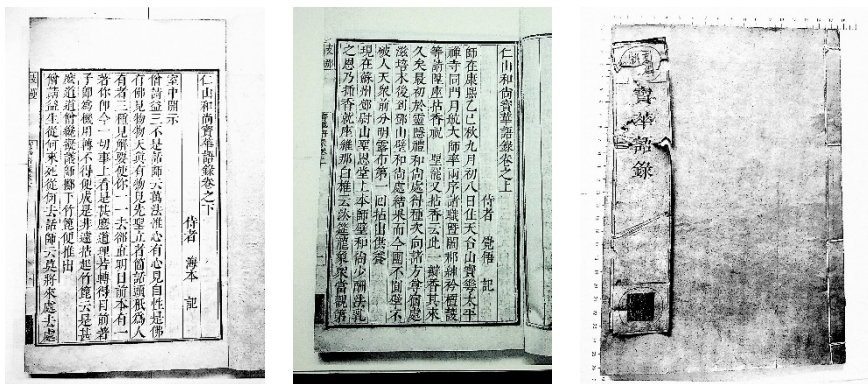 仁山和尚寶華語錄卷之下
侍者 海本 記
室中開示
僧請益三不是話師云萬法惟心有心見自性是佛
有佛見物物天真有物見先聖立者箇話頭秖為人
有者三種見解要使你一一去卻直朝目前本有一
著你仰今一切事上看是甚麼道理若轉得目前者
子即為機用轉不得便成是非遂拈起竹篦云是甚
麼道道僧纔擬議師擲下竹篦便推出
僧請益生從何來死從何去話師云莫將來處去處
仁山和尚寶華語錄卷之上
侍者 覺悟 記
師在康熙乙巳秋九月初八日住天台山寶華太平
禪寺同門月航大師率兩序諸職暨闔那練衿檀護
等請陞座拈香祝 聖罷又拈香云此一瓣香其來
久矣最初於靈隱禮和尚處得種次向諸方尊宿處
滋培末後到鄧山壁和尚處結果而今不擘不
破人天眾前分明露布第一回拈出供養
現在蘇州鄧尉山聖恩堂上本師壁和尚少酬法乳
之恩乃揷香就座維那白椎云法筵龍象眾當觀第
寶華語錄